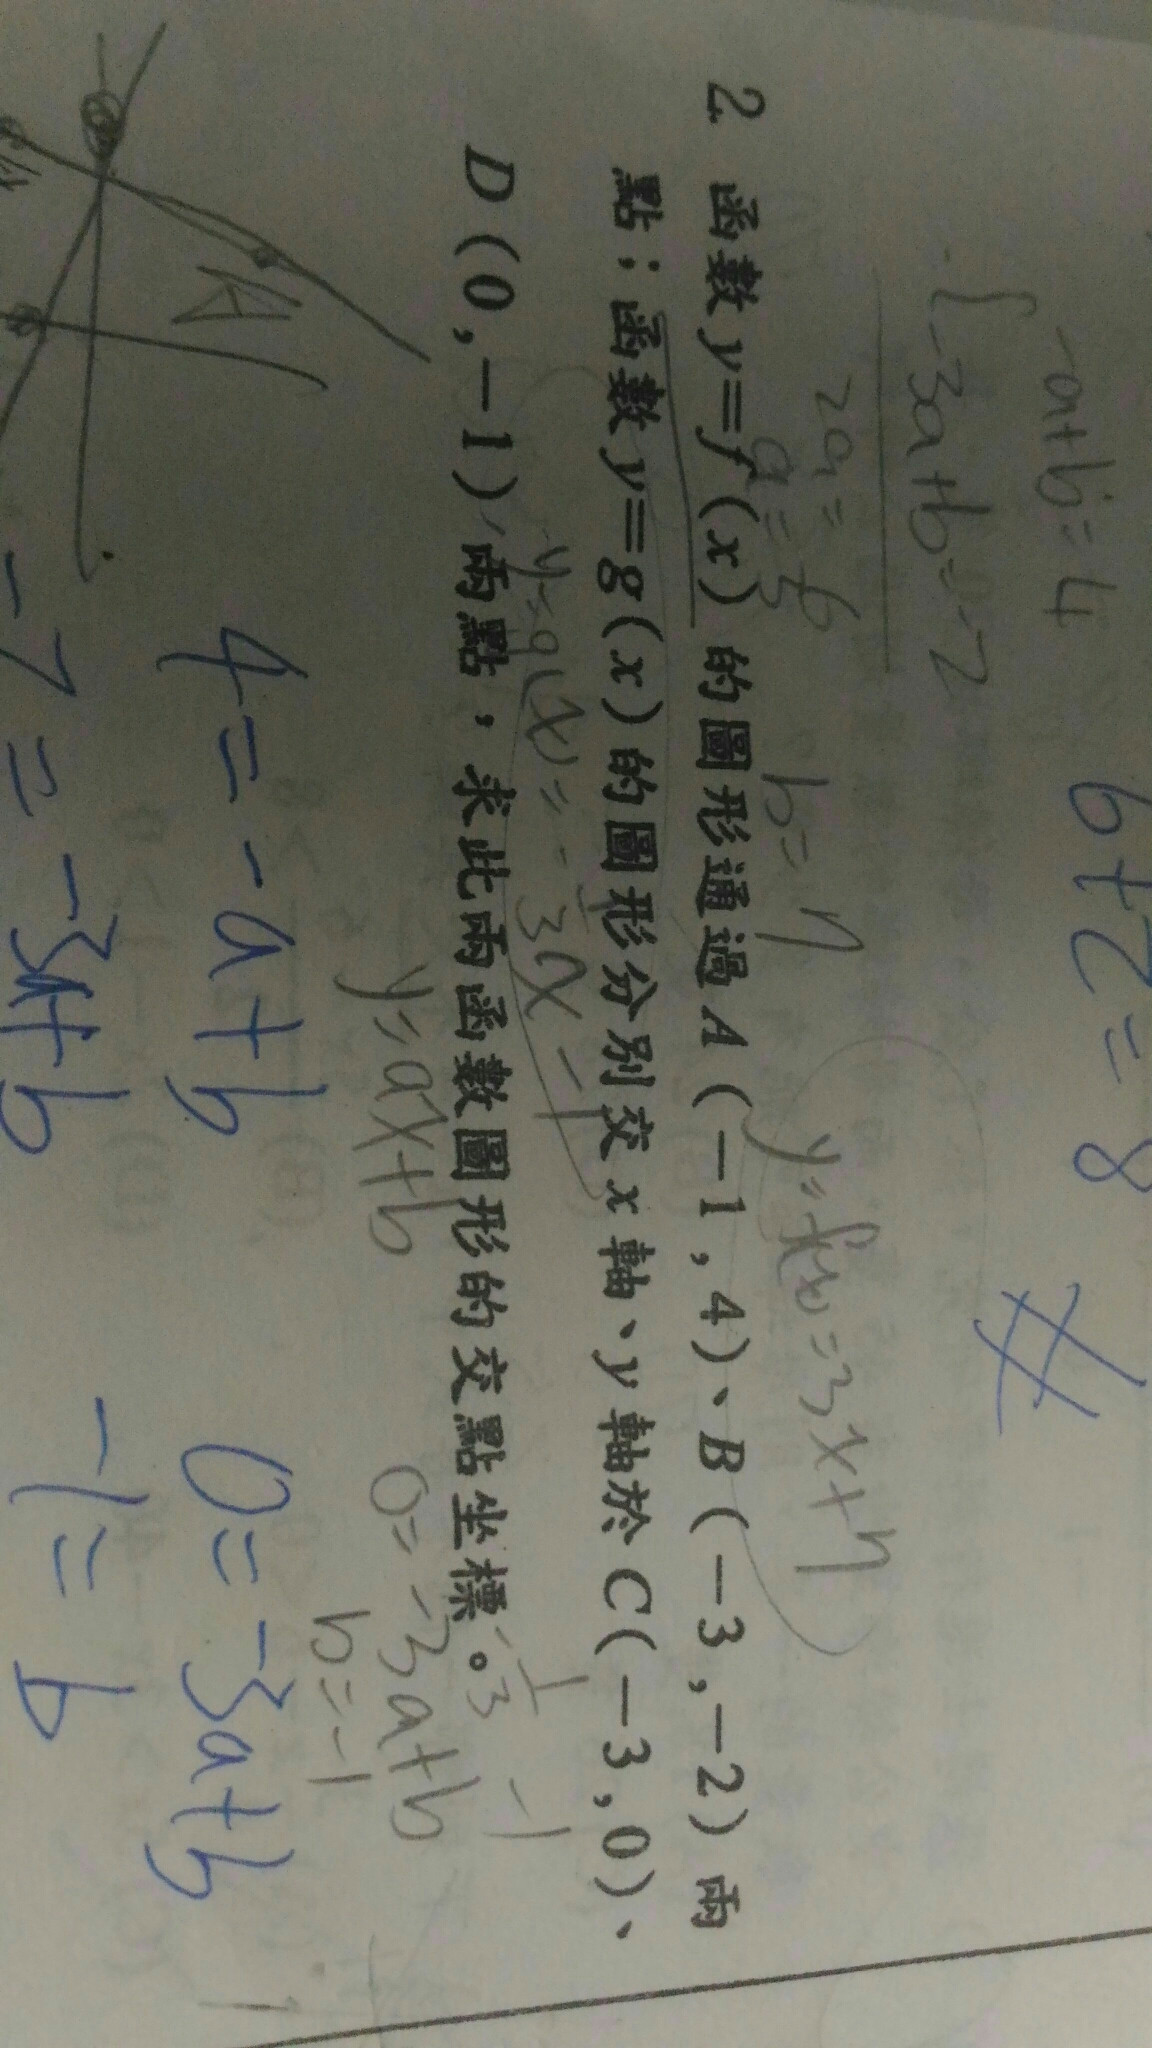 6+2=8
-a+b=4
-3a+b=-2
2a=6
a=3
b=7
y=f(x)=3x+7
2 函數y=f(x)的圖形通過A(-1,4)、B(-3,-2)兩
點;函數y=g(x)的圖形分別交x軸、y軸於C(-3,0)、
y=g(x)=-1/3x-1
D(0,-1)兩點,求此兩函數圖形的交點坐標。
-1/3 -1
y=ax+b
0=-3a+b
b=-1
4=-a+b
0=-3a+b
-1=b